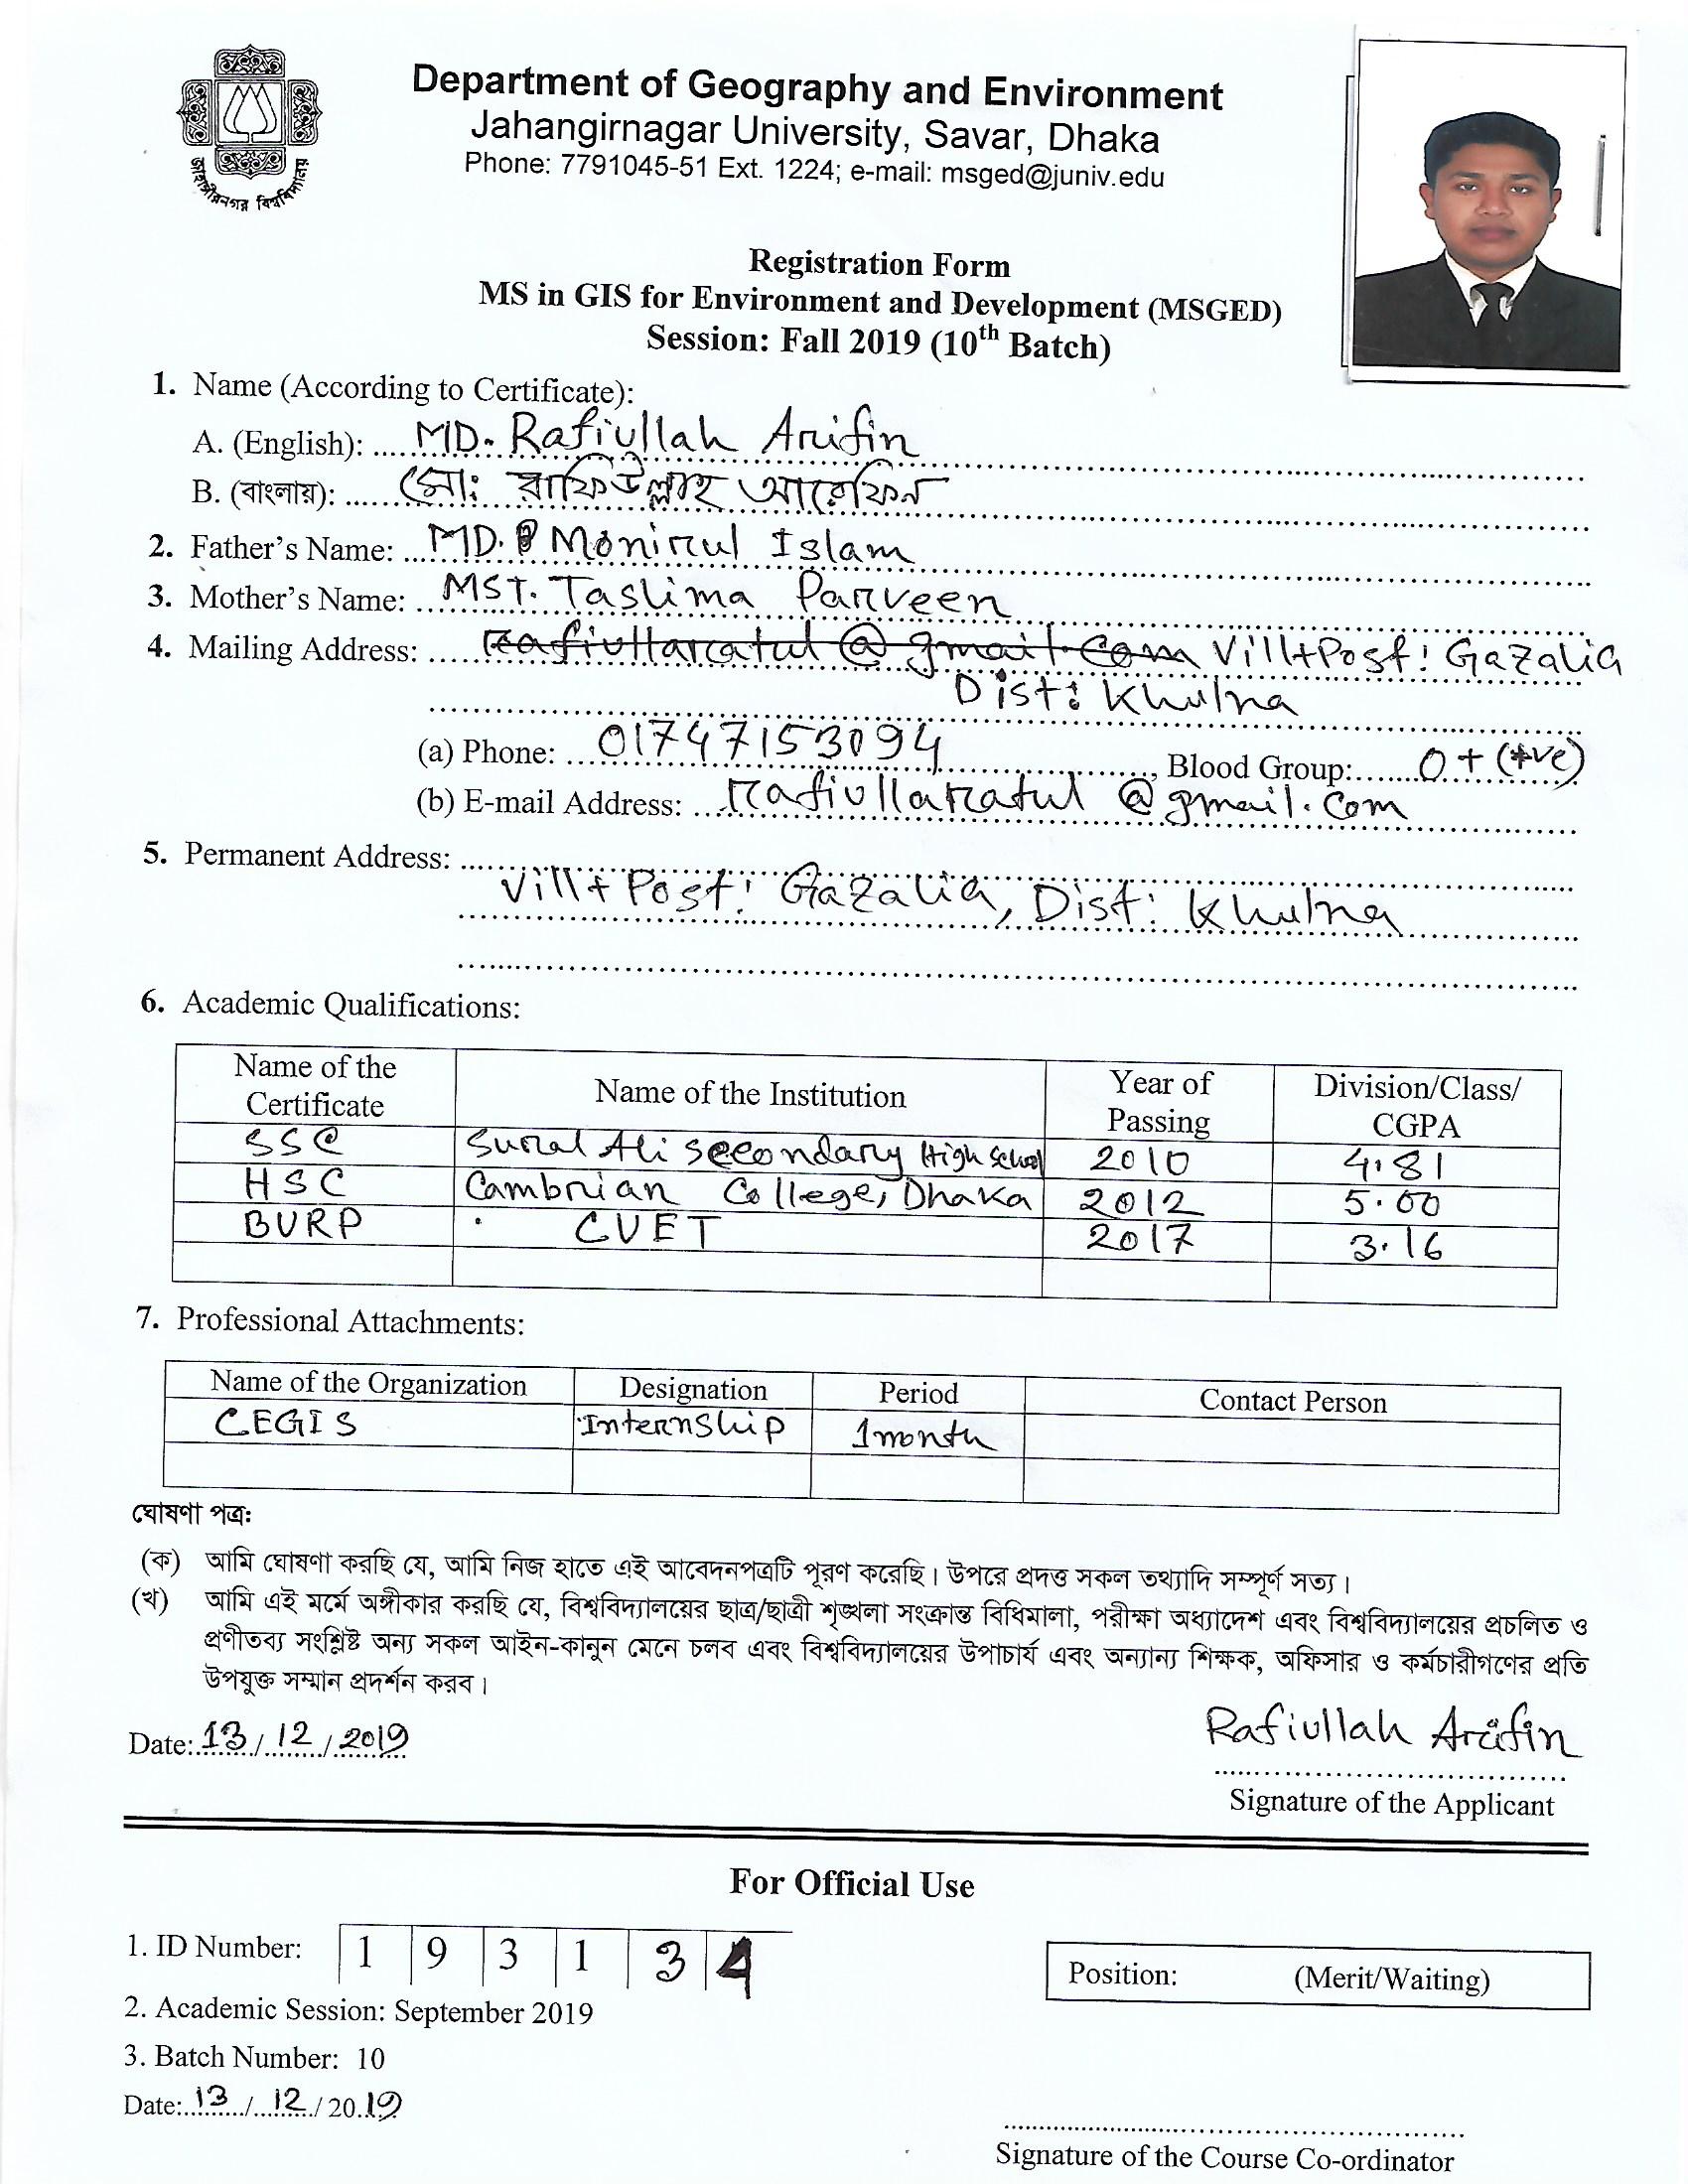 জাহাঙ্গীরনগর বিশ্ববিদ্যালয়
Department of Geography and Environment
Jahangirnagar University, Savar, Dhaka
Phone: 7791045-51 Ext. 1224; e-mail: msged@juniv.edu
Registration Form
MS in GIS for Environment and Development (MSGED)
Session: Fall 2019 (10th Batch)
1. Name (According to Certificate):
A. (English): MD. Rafiullah Arifin
B. (বাংলায়): মো: রাফিউল্লাহ আরেফিন
2. Father's Name: MD. Monirul Islam
3. Mother's Name: MST. Taslima Parveen
4. Mailing Address: rafiullaratul@gmail.com Vill+Post: Gazalia
Dist: Khulna
(a) Phone: 01747153094, Blood Group: O+ (+ve)
(b) E-mail Address: rafiullaratul@gmail.com
5. Permanent Address:
Vill+Post: Gazalia, Dist: Khulna
6. Academic Qualifications:
Name of the Certificate Name of the Institution Year of Passing Division/Class/CGPA
SSC Ali Secondary High School 2010 4.81
HSC Cambrian College, Dhaka 2012 5.00
BURP CUET 2017 3.16
7. Professional Attachments:
Name of the Organization Designation Period Contact Person
CEGIS Internship 1month
ঘোষণা পত্র:
(ক) আমি ঘোষণা করছি যে, আমি নিজ হাতে এই আবেদনপত্রটি পূরণ করেছি। উপরে প্রদত্ত সকল তথ্যাদি সম্পূর্ণ সত্য।
(খ) আমি এই মর্মে অঙ্গীকার করছি যে, বিশ্ববিদ্যালয়ের ছাত্র/ছাত্রী শৃঙ্খলা সংক্রান্ত বিধিমালা, পরীক্ষা অধ্যাদেশ এবং বিশ্ববিদ্যালয়ের প্রচলিত ও
প্রণীতব্য সংশ্লিষ্ট অন্য সকল আইন-কানুন মেনে চলব এবং বিশ্ববিদ্যালয়ের উপাচার্য এবং অন্যান্য শিক্ষক, অফিসার ও কর্মচারীগণের প্রতি
উপযুক্ত সম্মান প্রদর্শন করব।
Rafiullah Arifin
Date: 13/12/2019
Signature of the Applicant
For Official Use
1. ID Number: 1 9 3 1 3 4
Position: (Merit/Waiting)
2. Academic Session: September 2019
3. Batch Number: 10
Date: 13/12/2019
Signature of the Course Co-ordinator